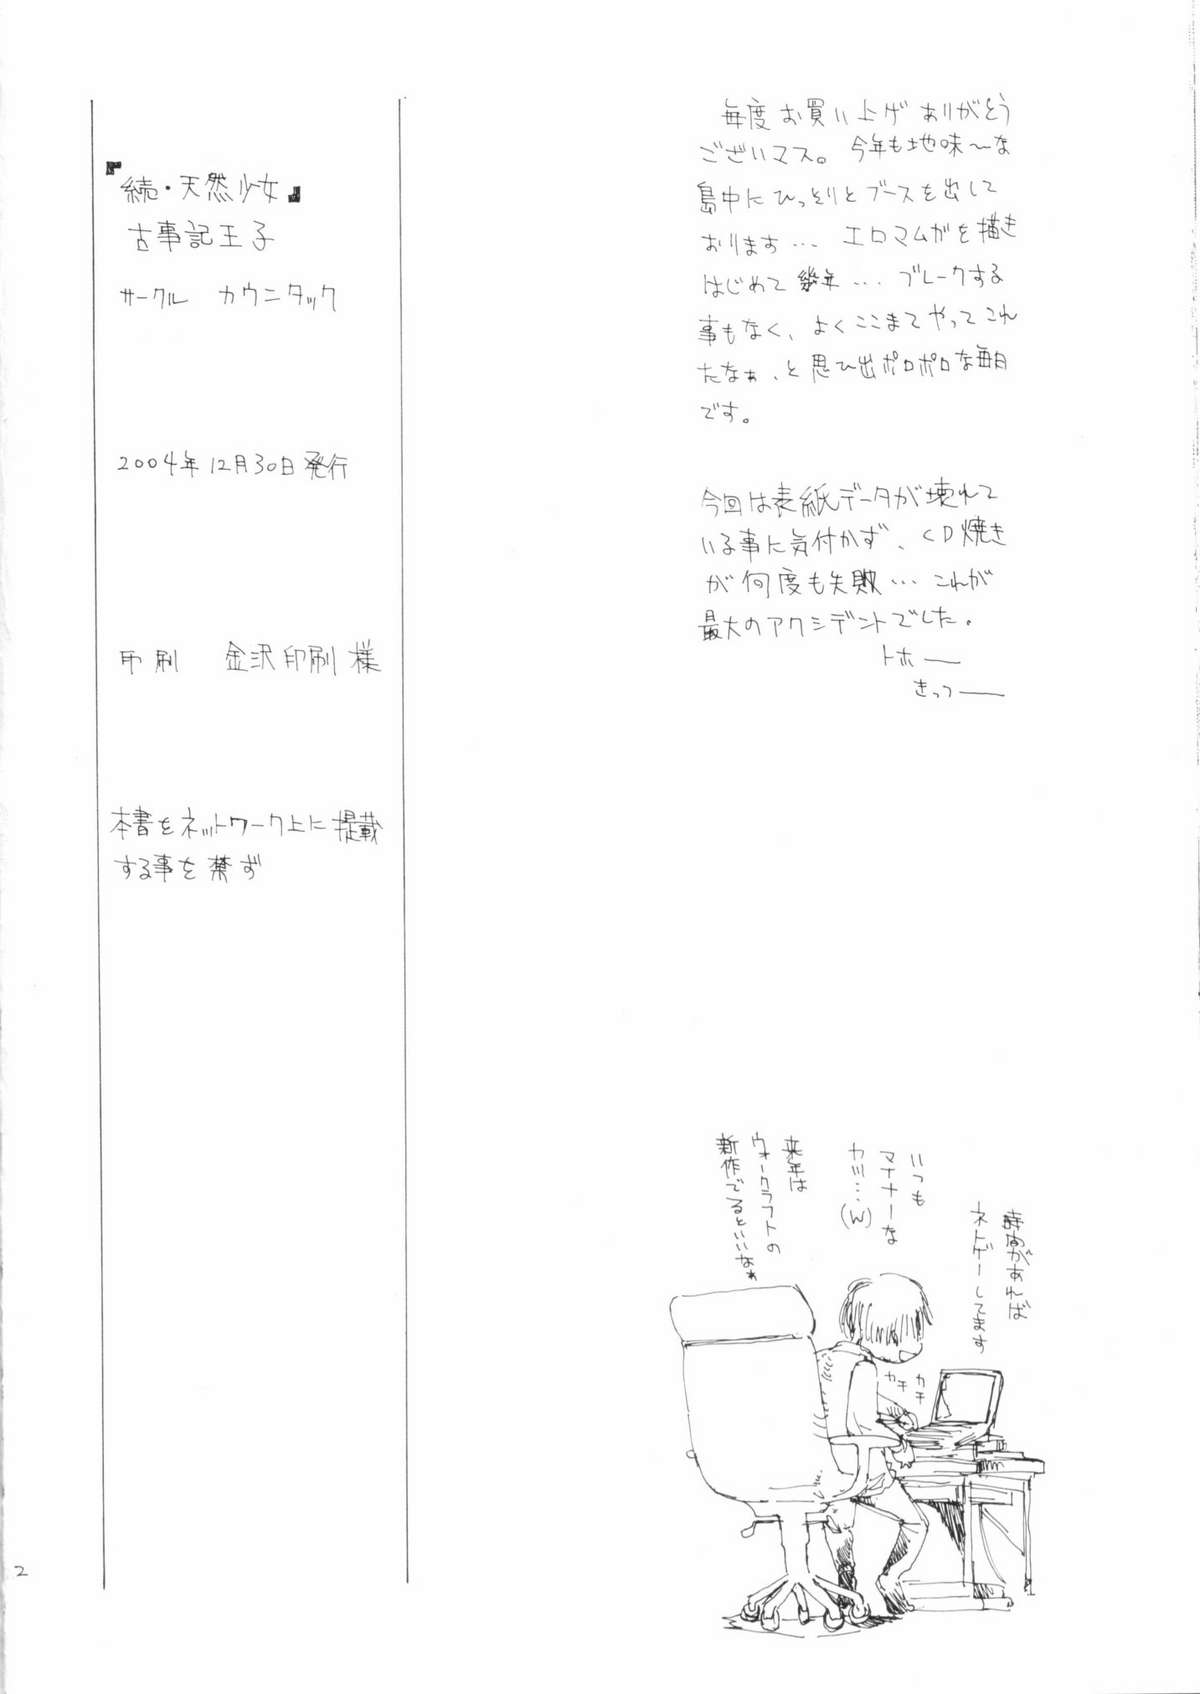 『続・天然少女』
古事記王子
サークル カウニタック
2004年12月30日発行
印刷 金沢印刷様
本書をネットワーク上に掲載
する事を禁ず
毎度お買い上げありがとう
ございマス。今年も地味〜な
島中にひっそりとブースを出して
おります… エロマムガを描き
はじめて幾年… ブレークする
事もなく、よくここまでやってこれ
たなぁ、と思ひ出ポロポロな毎日
です。
今回は表紙データが壊れて
いる事に気付かず、CD焼き
が何度も失敗… これが
最大のアクシデントでした。
トホー
きっつー
時間があれば
ネトゲーしてます
いつも
マイナーな
カ…(W)
来年は
ウォークラフトの
新作でるといいなぁ
カチ
カチ
2